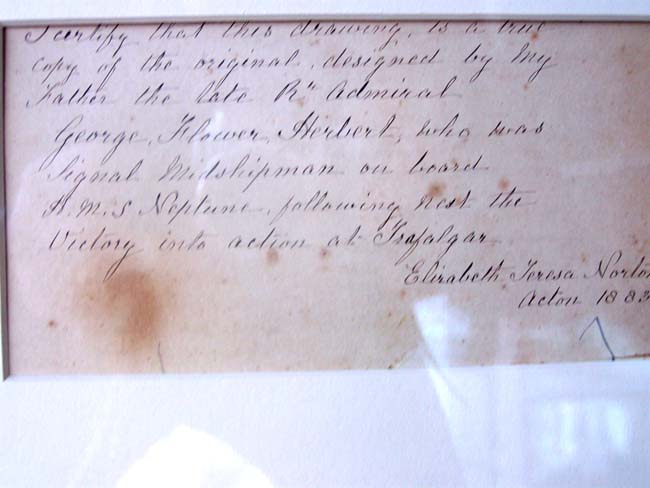 I certify that this drawing, is a true
copy of the original, designed by my
Father the late Rr Admiral
George, Flower, Herbert, who was
Signal Midshipman on board
H.M.S Neptune, following next the
Victory into action at Trafalgar
Elizabeth Teresa Norton
Acton 1883